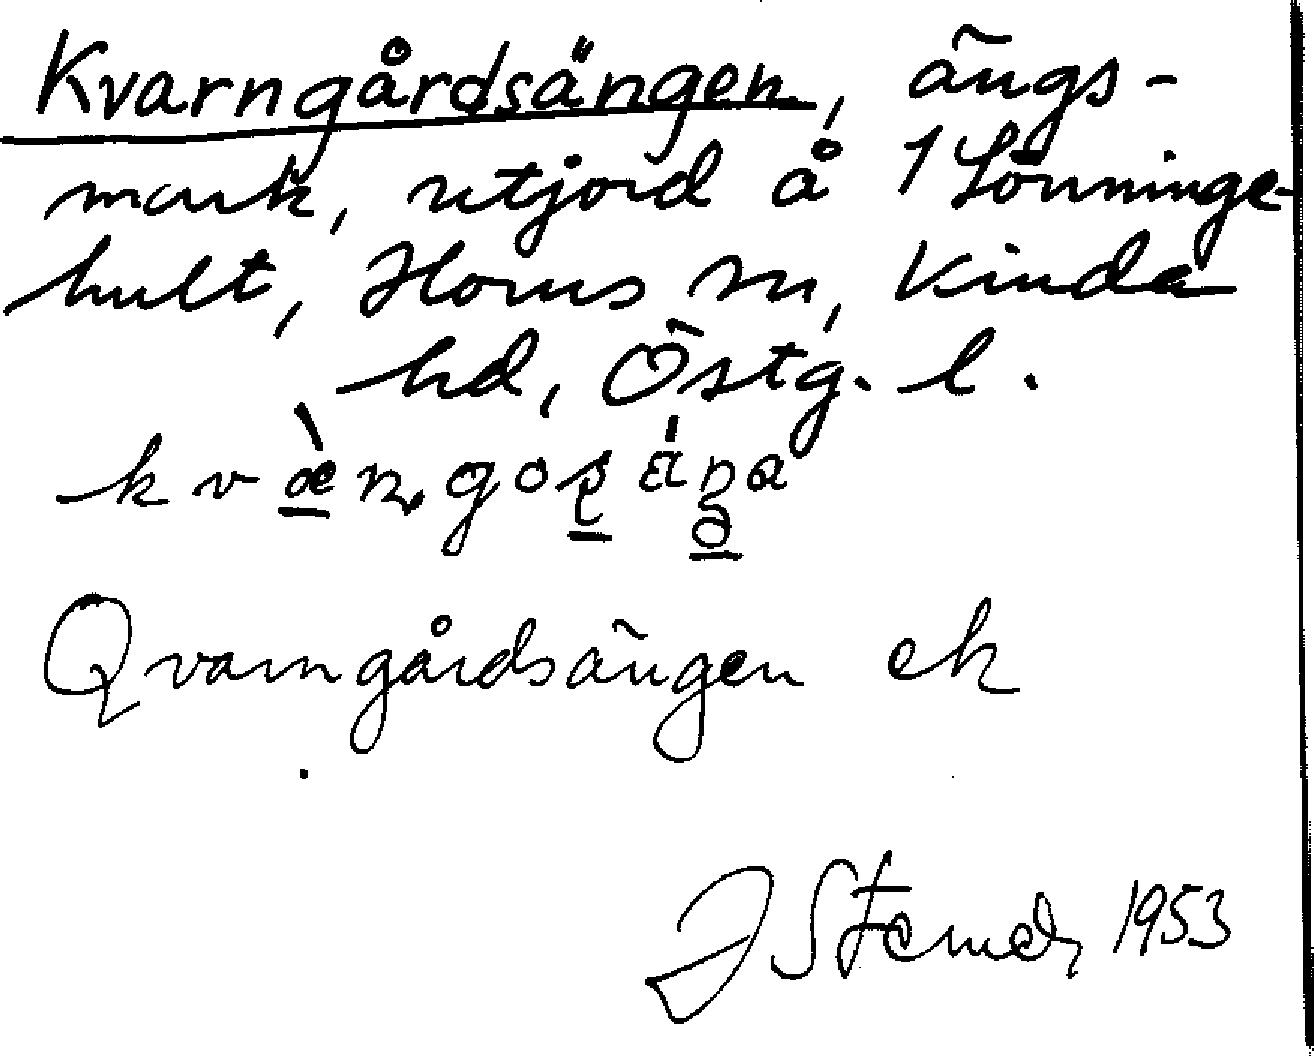 Kvarngårdsängen, ängs-
mark, utjord å 1 Lönninge-
hult, Horns sn, Kinda
hd, Östg. l.
Qvarngårdsängen ek
J 1953